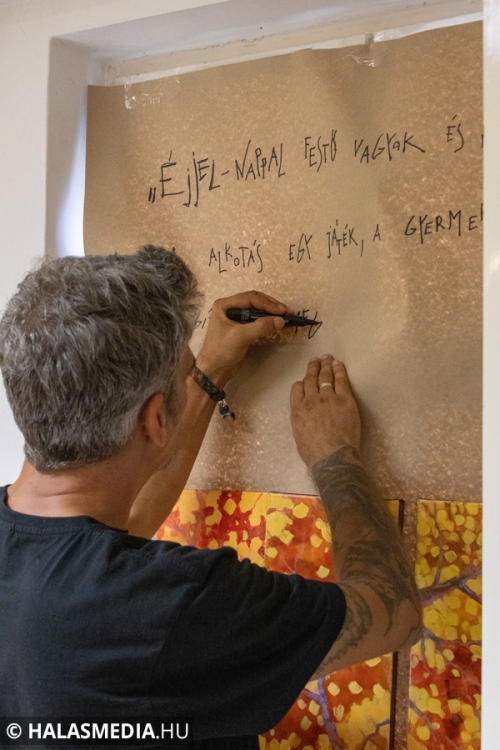 „Éjjel-NAPPAL FESTŐ VAGYOK ÉS
ALKOTÁS EGY JÁTÉK, A GYERMEK
© HALASMEDIA.HU